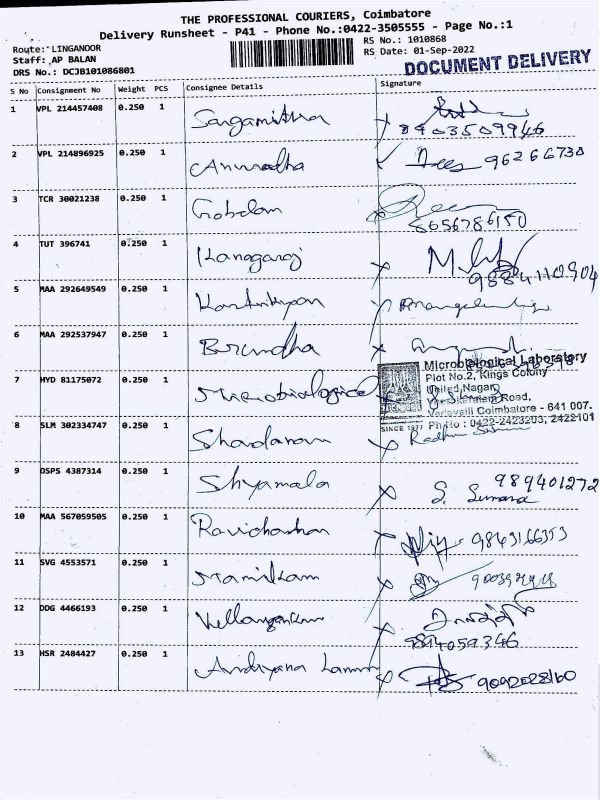 THE PROFESSIONAL COURIERS, Coimbatore
Delivery Runsheet - P41 - Phone No.:0422-3505555 - Page No.:1
Route: LINGANOOR
Staff: AP BALAN
DRS No.: DCJB101086801
RS No.: 1010868
RS Date: 01-Sep-2022
DOCUMENT DELIVERY
S No Consignment No Weight PCS Consignee Details Signature
1 VPL 214457408 0.250 1 Sangamithra
8903509946
2 VPL 214896925 0.250 1 Anuradha 96266730
3 TCR 30021238 0.250 1
8056786150
4 TUT 396741 0.250 1 Kanagaraj
9884110904
5 MAA 292649549 0.250 1
6 MAA 292537947 0.250 1 Brundha
7 HYD 81175072 0.250 1 Microbiological
Microbiological Laboratory
Plot No.2, Kings Colony
United Nagar,
Road,
Vedavalli Coimbatore - 641 007.
SINCE 1977 Ph No : 0422-2423203, 2422101
8 SLM 302334747 0.250 1 Radha
9 DSPS 4387314 0.250 1 Shyamala 989401272
10 MAA 567059505 0.250 1 Ravichandran 9843166353
11 SVG 4553571 0.250 1
12 DDG 4466193 0.250 1
9814059346
13 HSR 2484427 0.250 1 9092028160